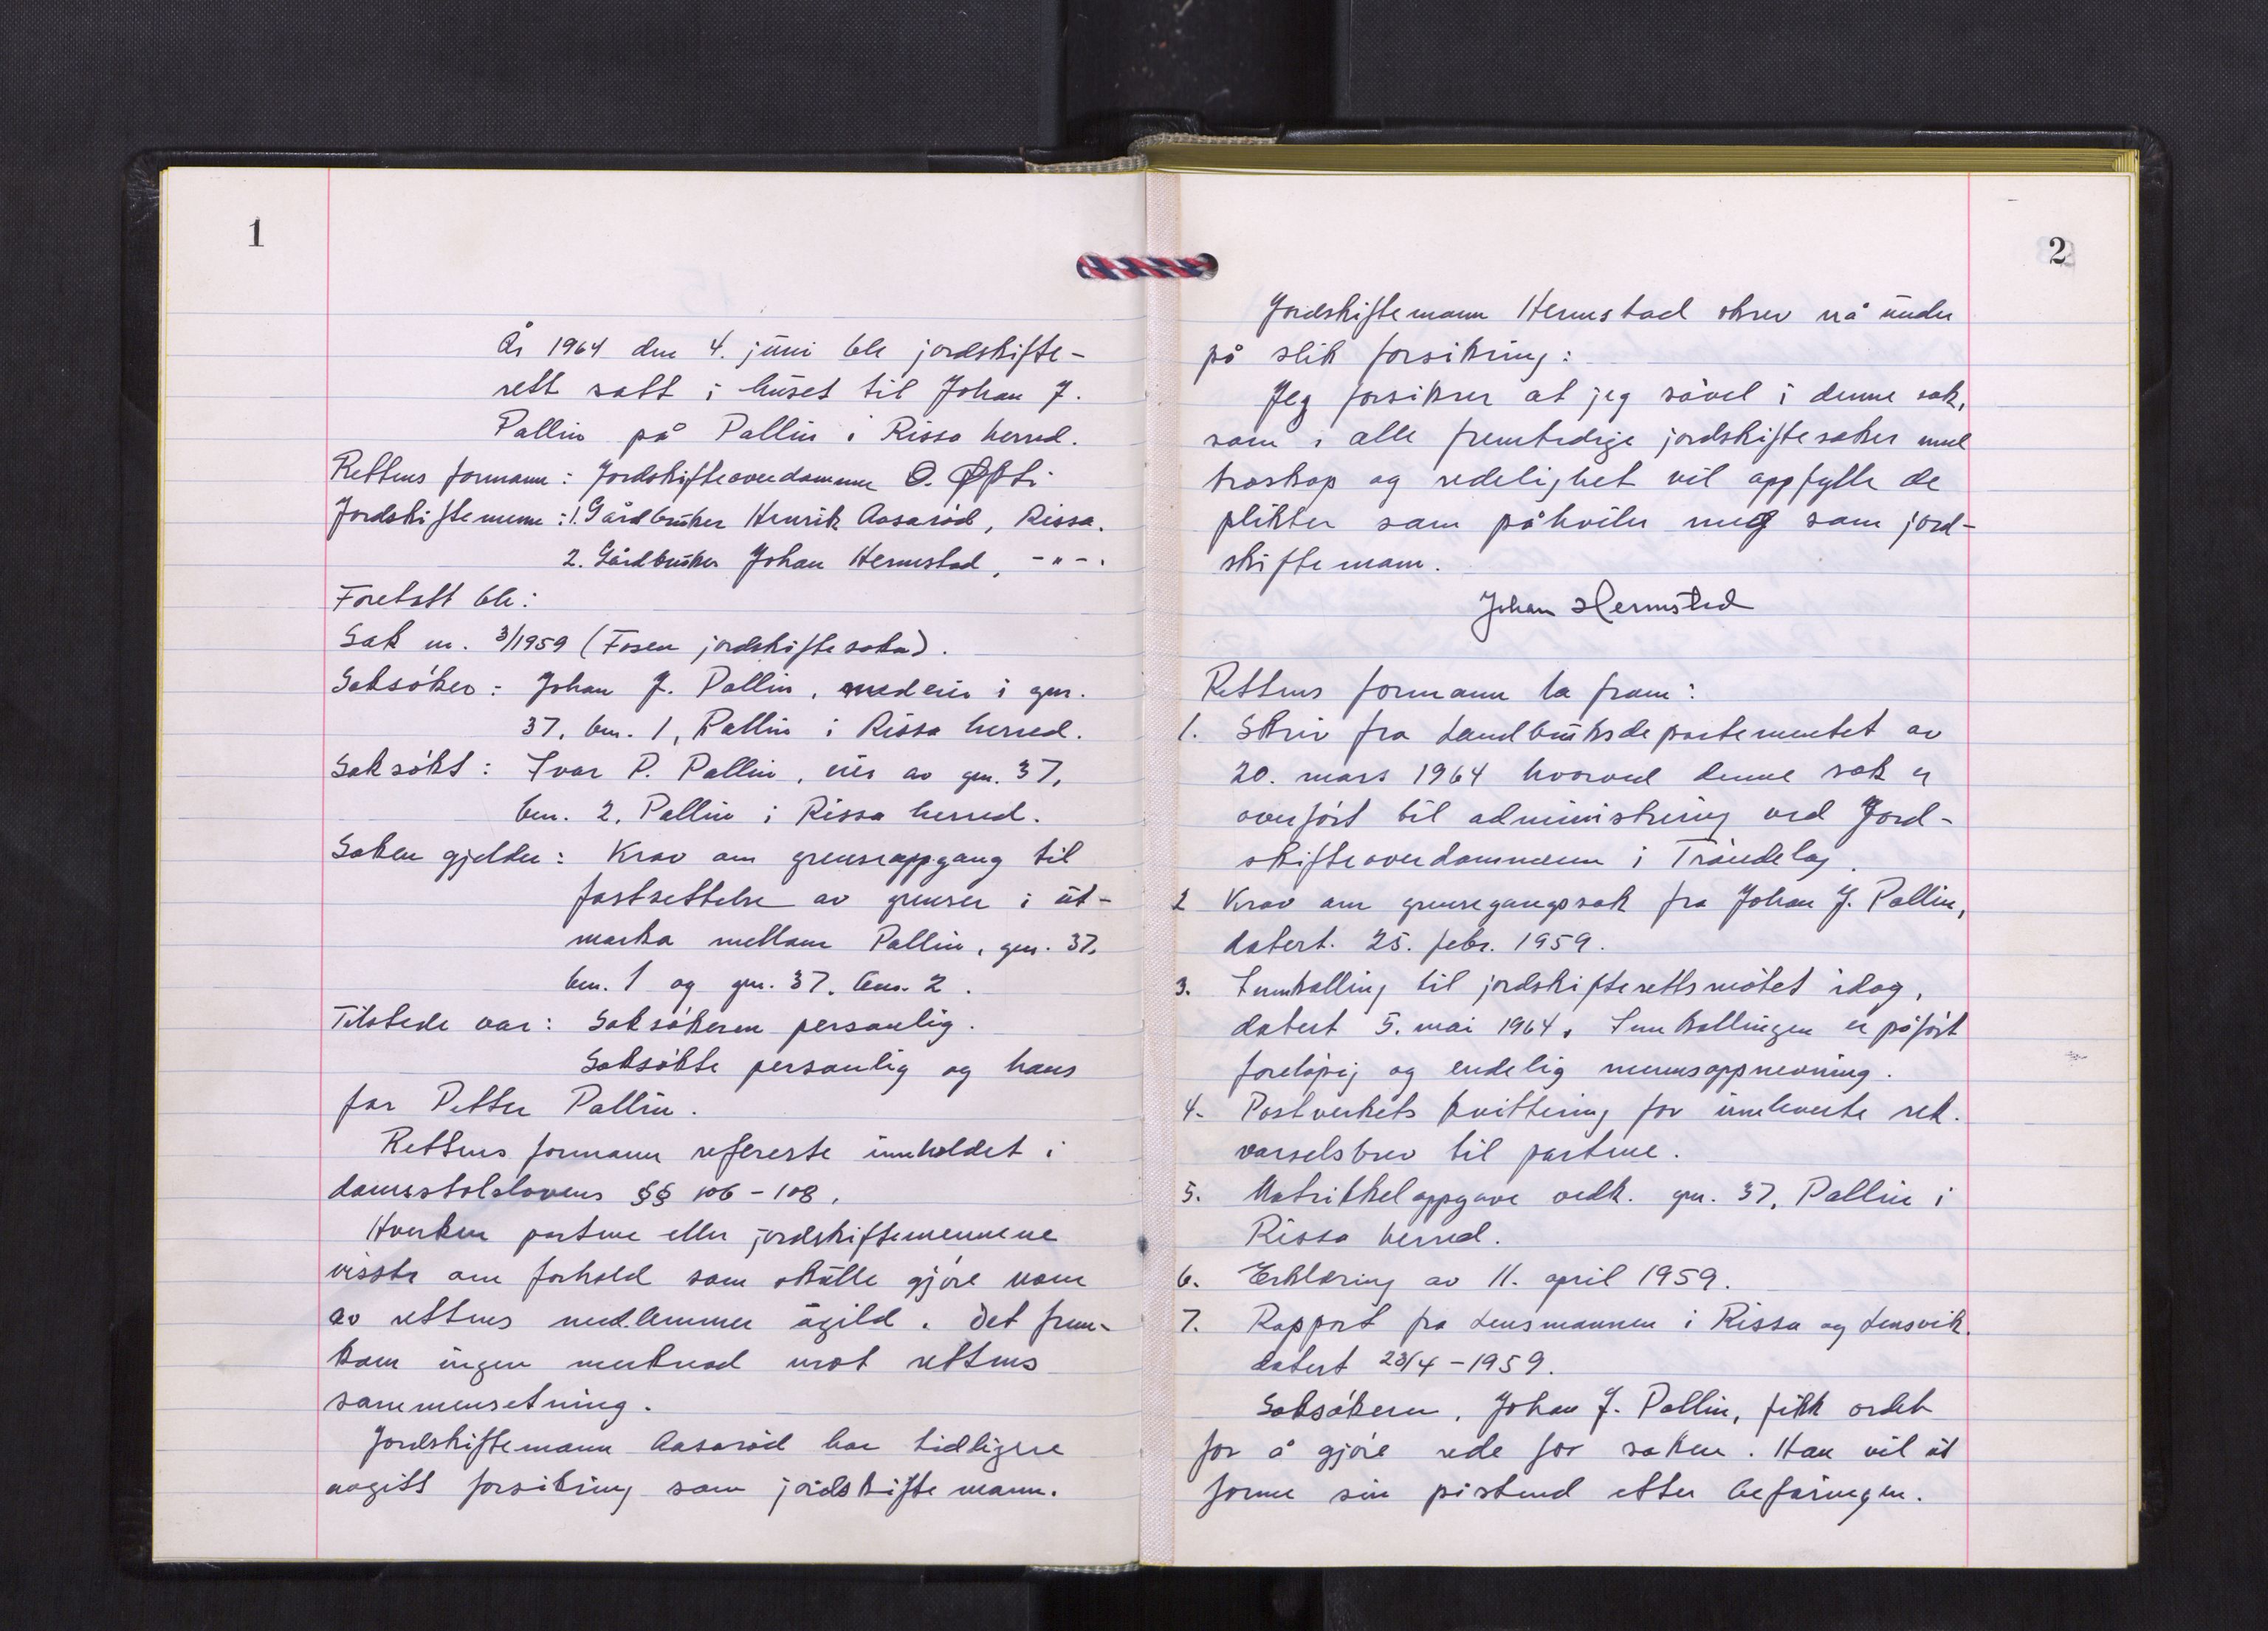 1
År 1964 den 4. juni ble jordskifte-
rett satt i huset til Johan J.
Pallin på Pallin i Rissa herred.
Rettens formann: Jordskifteoverdommer O. Øfsti
Jordskiftemenn: 1. Gårdbruker Henrik Aasarød, Rissa.
2. Gårdbruker Johan Hermstad, -"-.
Foretatt ble:
Sak nr. 3/1959 (Fosen jordskiftesokn).
Saksøker: Johan J. Pallin, medeier i gnr.
37, bnr. 1, Pallin i Rissa herred.
Saksøkt: Ivar P. Pallin, eier av gnr. 37,
bnr. 2, Pallin i Rissa herred.
Saken gjelder: Krav om grenseoppgang til
fastsettelse av grenser i ut-
marka mellom Pallin, gnr. 37,
bnr. 1 og gnr. 37, bnr. 2.
Tilstede var: Saksøkeren personlig.
Saksøkte personlig og hans
far Petter Pallin.
Rettens formann refererte innholdet i
domstolslovens §§ 106-108.
Hverken partene eller jordskiftemennene
visste om forhold som skulle gjøre noen
av rettens medlemmer ugild. Det frem-
kom ingen merknad mot rettens
sammensetning.
Jordskiftemann Aasarød har tidligere
avgitt forsikring som jordskiftemann.
2
Jordskiftemann Hermstad skrev nå under
på slik forsikring:
Jeg forsikrer at jeg såvel i denne sak,
som i alle fremtidige jordskiftesaker med
troskap og redelighet vil oppfylle de
plikter som påhviler meg som jord-
skiftemann.
Johan Hermstad
Rettens formann la fram:
1. Skriv fra Landbruksdepartementet av
20. mars 1964 hvorved denne sak er
overført til administrering ved Jord-
skifteoverdommeren i Trøndelag.
2 Krav om grensegangssak fra Johan J. Pallin,
datert. 25. febr. 1959.
3. Innkalling til jordskifterettsmøtet idag,
datert 5. mai 1964. Innkallingen er påført
foreløpig og endelig mennsoppnevning.
4. Postverkets kvittering for innleverte rek.
varselsbrev til partene.
5. Matrikkeloppgave vedk. gnr. 37, Pallin i
Rissa herred.
6. Erklæring av 11. april 1959.
7. Rapport fra Lensmannen i Rissa og Lensvik.
datert 23/4-1959.
Saksøkeren, Johan J. Pallin, fikk ordet
for å gjøre rede for saken. Han vil ut
forme sin påstand etter befaringen.